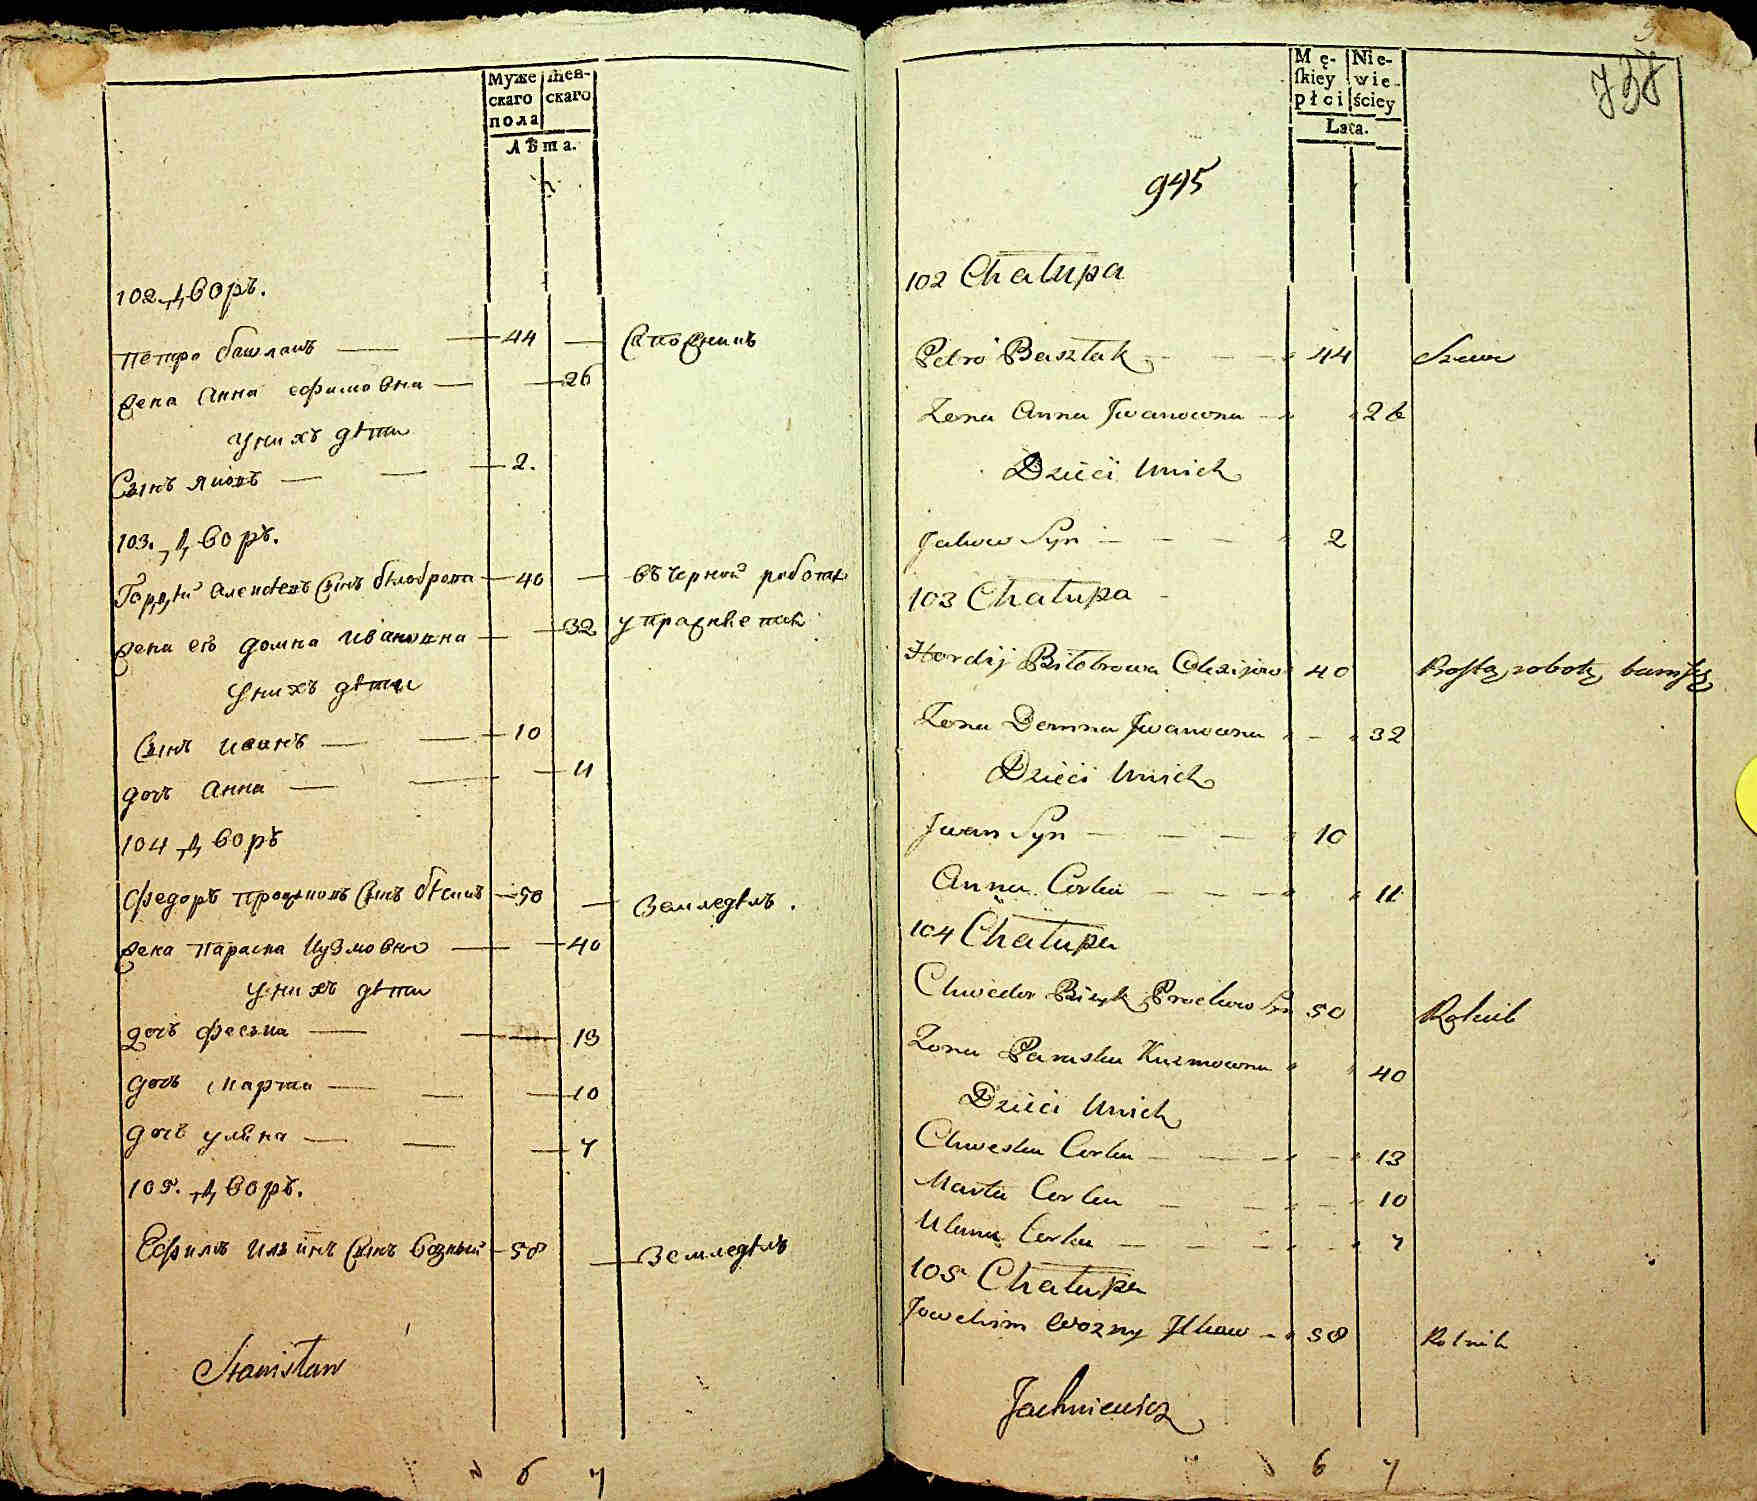 Муже Жен-
скаго скаго
пола
Лѣта.
102. Дворъ.
Петро башлакъ 44 Сапожникъ
жена Анна ефимовна 26
у нихъ дѣти
Сынъ яковъ 2.
103. Дворъ.
Гордѣй Алексѣевъ Сынъ бѣлоброва 40 въ черной работѣ
жена его домна Ивановна 32 упражняется
у нихъ дѣти
Сынъ иванъ 10
дочь Анна 11
104 Дворъ
Федоръ Прокповъ Сынъ бѣсикъ 50 Земледѣлъ.
жена Параска Кузмовна 40
у нихъ дѣти
дочь феська 13
дочь Марта 10
дочь уляна 7
105. Дворъ.
Ефимъ Ильинъ Сынъ Возный 58 Земледѣлъ
Stanisław
6 7
Mę- Nie-
ſkiey wie-
płci ściey
Lata.
738
945
102 Chałupa
Petro Basztak 44 Szewc
Zona Anna Jwanowna 26
Dzieci Unich
Jakow Syn 2
103 Chałupa
Hordij Biłobrowa Olexijow 40 Prostą robotą bawiſię
Zona Domna Jwanowna 32
Dzieci Unich
Jwan Syn 10
Anna Corka 11
104 Chałupa
Chwedor Bisyk Prockow Syn 50 Rolnik
Zona Paraska Kuzmowna 40
Dzieci Unich
Chweska Corka 13
Marta Corka 10
Ulana Corka 7
105 Chałupa
Jowchim Wozny Jlkow 58 Rolnik
Jachniewicz
6 7